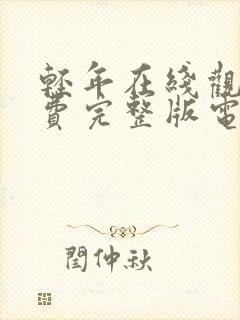 輕年在綫觀
費完整版電
閆仲秋